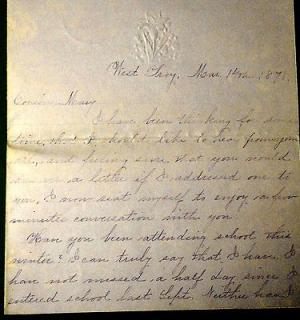 West Troy, Mar. 1876.
Cousin Mary
I have been thinking for some
time, that I should like to hear from you
all, and feeling sure that you would
answer a letter if I addressed one to
you, I now seat myself to enjoy a few
minutes conversation with you.
Have you been attending school this
winter? I can truly say that I have. I
have not missed a half day since I
entered school last Sept. Neither have I